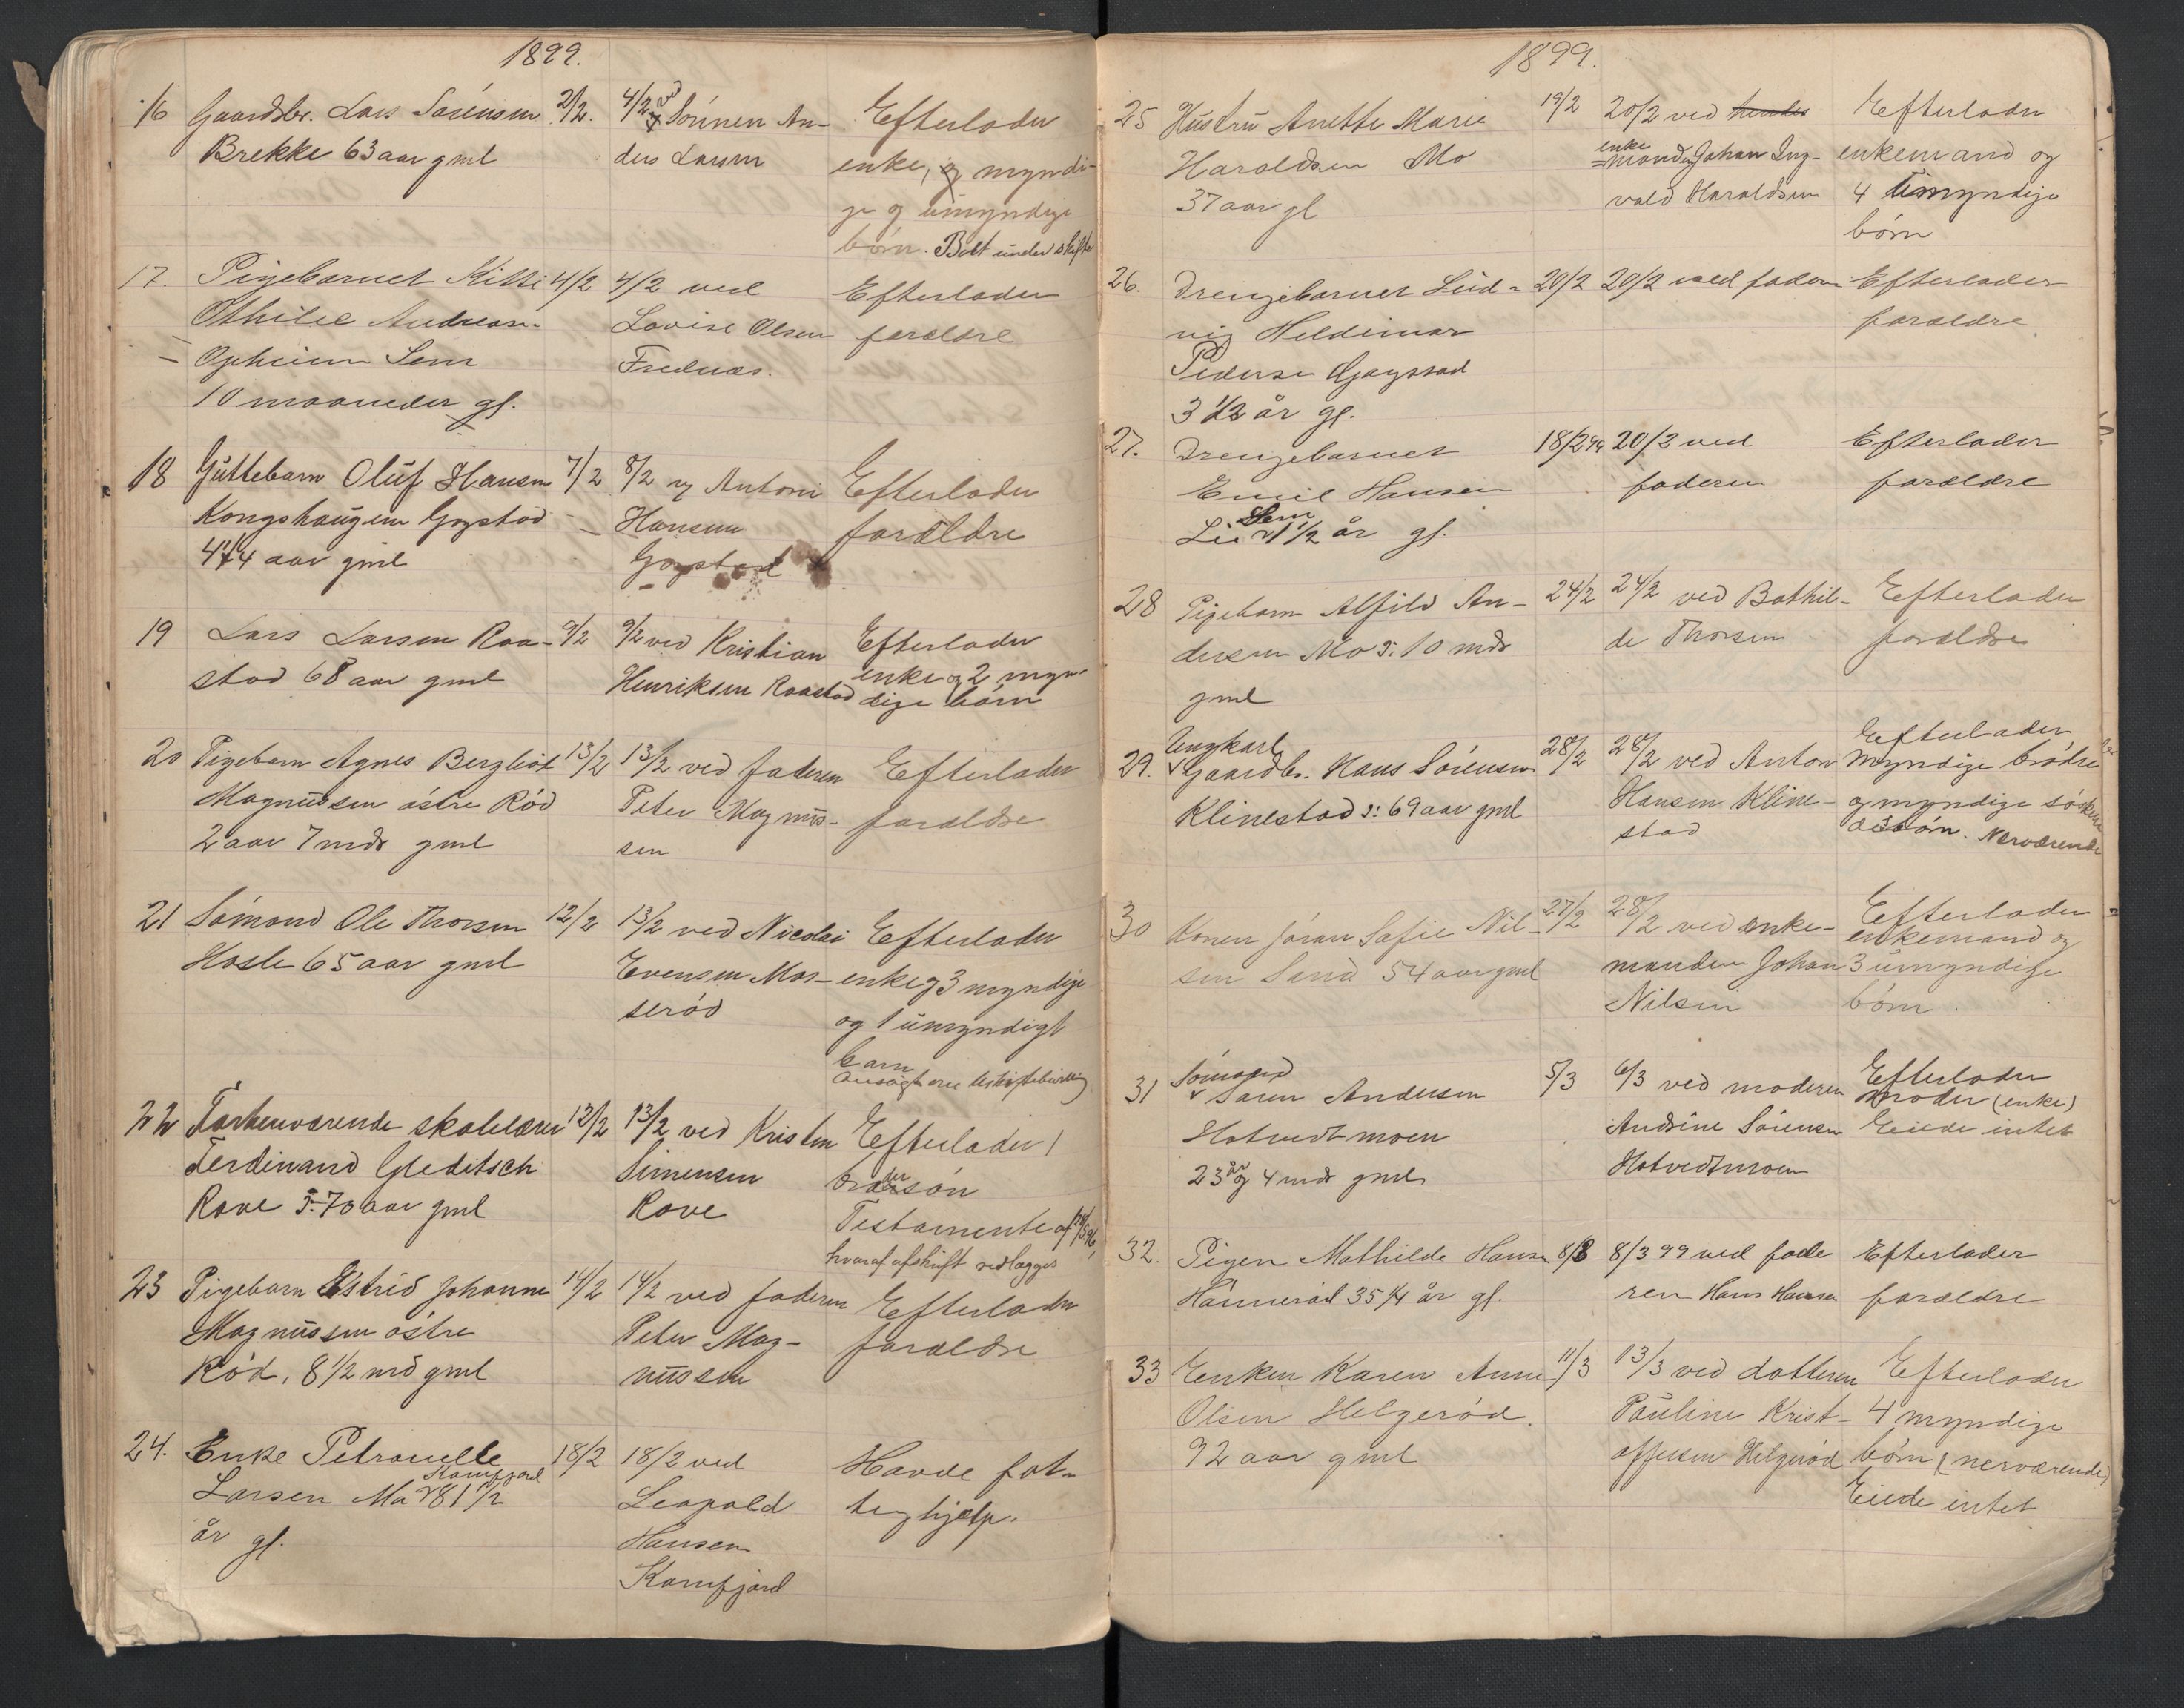 1899.
16 Gaardbr. Lars Sørensen 2/2. 4/2 ved Sønnen An- Efterlader
Brekke 63 aar gml ders Larsen enke, og myndi-
ge og umyndige
børn. Bolt under skifte
17. Pigebarnet Kitti 4/2 4/2 ved Efterlader
Othilie Andrea Lovise Olsen forældre
Opheim Sem Frednæs.
10 maaneder gl.
18 Guttebarn Oluf Hansen 7/2 8/2 v Antoni Efterlader
Kongshaugen Gogstad Hansen forældre
4 1/4 aar gml Gogstad
19 Lars Larsen Raa- 9/2 9/2 ved Kristian Efterlader
stad 68 aar gml Henriksen Raastad enke og 2 myn-
dige børn
20 Pigebarn Agnes Bergliot 13/2 13/2 ved faderen Efterlader
Magnussen østre Rød Peter Magnus- forældre
2 aar 7 mdr gml sen
21 Sømand Ole Thorsen 12/2 13/2 ved Nicolai Efterlader
Hasle 65 aar gml Evensen Mos- enke og 3 myndige
serød og 1 umyndigt
barn
22 Forhenværende skolelærer 12/2 13/2 ved Kristen Efterlader 1
Ferdinand Gleditsch Simensen brodersøn
Rove 70 aar gml Rove Testamente af
hvoraf afskrift vedlægges
23 Pigebarn Estrid Johanne 14/2 14/2 ved faderen Efterlader
Magnussen østre Peter Mag- forældre
Rød, 8 1/2 md gml nussen
24. Enke Petronelle 18/2 18/2 ved Havde fat-
Larsen Mø Kamfjord 81 1/2 Leopold tighjælp.
år gl. Hansen
Kamfjord
1899.
25 Hustru Anette Marie 19/2 20/2 ved hendes Efterlader
Haraldsen Mo enkemanden Johan Ing- enkemand og
37 aar gl vald Haraldsen 4 umyndige
børn
26. Drengebarnet Lud- 20/2 20/2 ved faderen Efterlader
vig Heldimar forældre
Pederse Gogstad
3 1/2 år gl.
27. Drengebarnet 18/2 99 20/2 ved Efterlader
Emil Hansen faderen forældre
Lie Sem 1 1/2 år gl.
28 Pigebarn Alfild An- 24/2 24/2 ved Bothil- Efterlader
dersen Mo 10 mdr de Thorsen forældre
gml
29. Ungkarl Gaardbr. Hans Sørensen 28/2 28/2 ved Anton Efterlader myndige brødre
Klinestad 69 aar gml Hansen Kline- og myndige søsken-
stad debørn. Nærværende
30 Konen Jøran Sofie Nil- 27/2 28/2 ved enke- Efterlader
sen Sand 54 aar gml manden Johan enkemand og
Nilsen 3 umyndige
børn.
31 Sømand Søren Andersen 5/3 6/3 ved moderen Efterlader
Hotvedtmoen Andrine Sørensen moder (enke)
23 år og 4 mdr gml Hotvedtmoen Eiede intet
32. Pigen Mathilde Hansen 8/3 8/3 99 ved fade Efterlader
Hannerød 35 1/4 år gl. ren Hans Hansen forældre
33 Enken Karen Anne 11/3 13/3 ved datteren Efterlader
Olsen Helgerød. Pauline Krist- 4 myndige
92 aar gml offersen Helgerød børn (nerværende)
Eiede intet